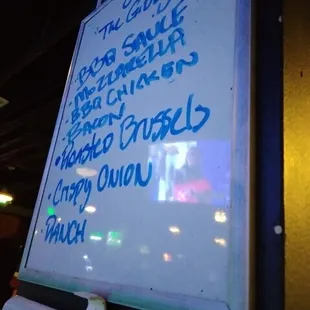 "The
• BBQ SAUCE
• MOZZARELLA
• BBQ CHICKEN
• BACON
• Roasted Brussels
• Crispy Onion
• RANCH